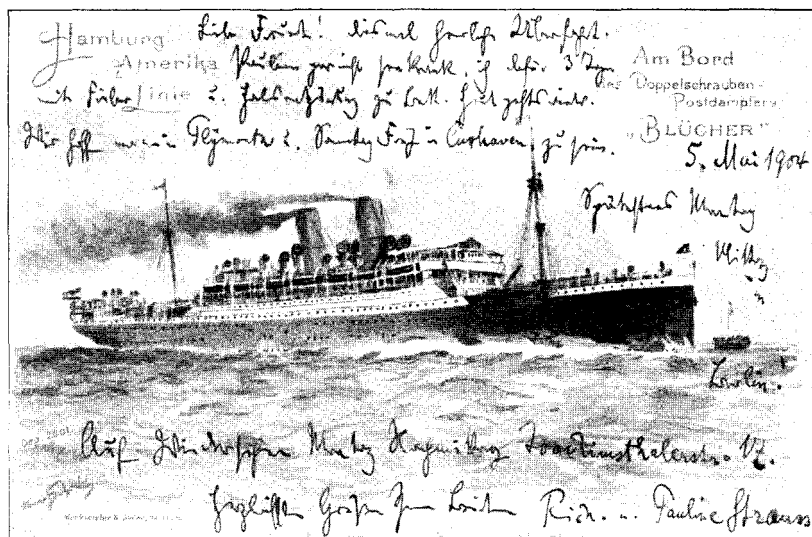 Hamburg
Amerika
Linie
Am Bord
des Doppelschrauben-
Postdampfers
"BLÜCHER"
Liebe Freunde! diesmal herrliche Überfahrt.
Pauline gar nicht seekrank, ich dafür 3 Tage
mit Fieber u. Halsentzündung zu Bett. Heut geht's wieder.
Wir hoffen in Plymouth u. Samstag Früh in Cuxhaven zu sein.
5. Mai 1904
Spätestens Montag
Mittag
Berlin!
Auf Wiedersehen Montag Nachmittag Joachimsthalerstr. 17.
Herzlichsten Grüßen Ihnen beiden Rich. u. Pauline Strauss